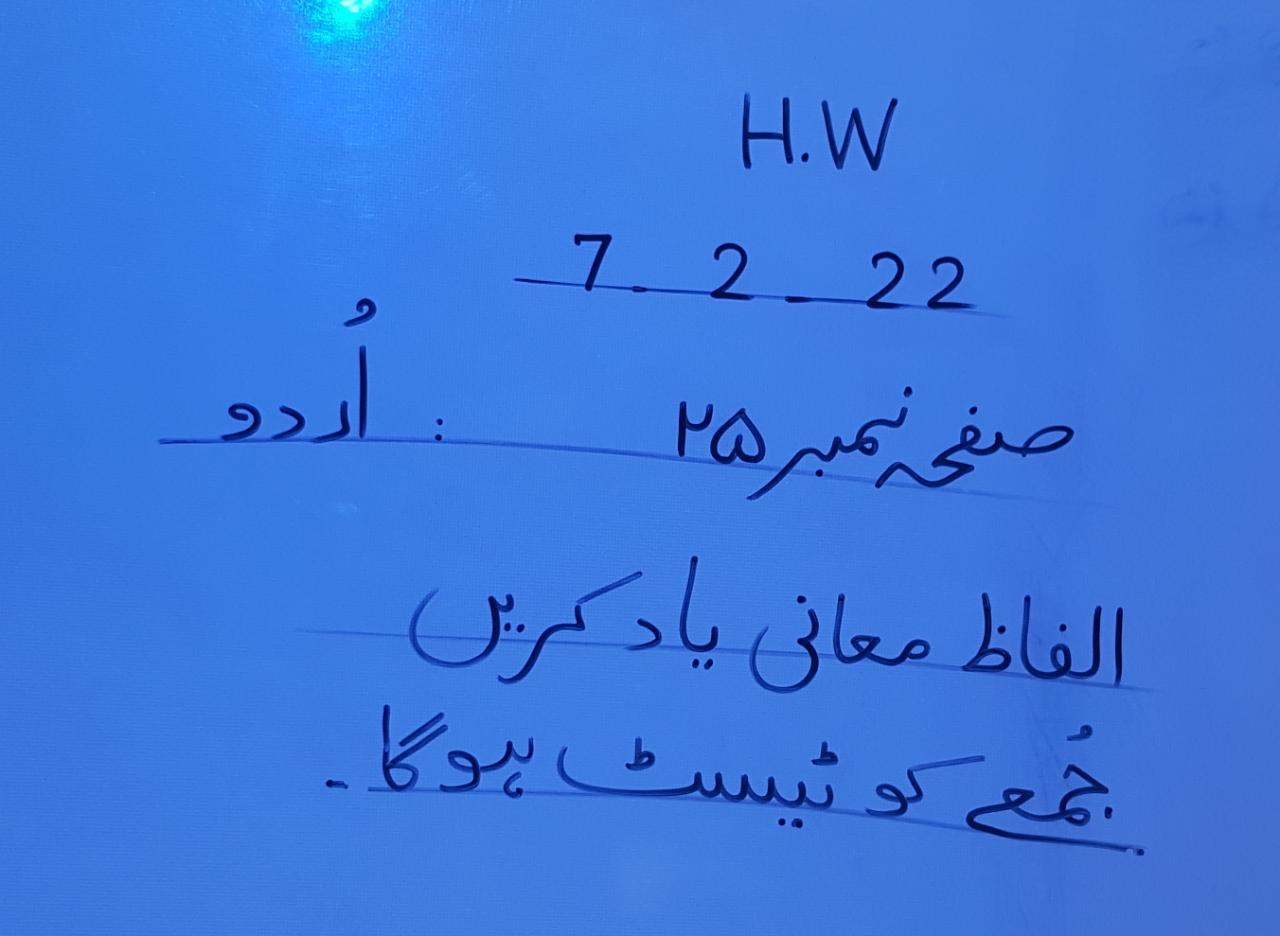 H.W
7.2.22
اُردو : صفحہ نمبر ۲۵
الفاظ معانی یاد کریں
جُمعے کو ٹیسٹ ہوگا۔